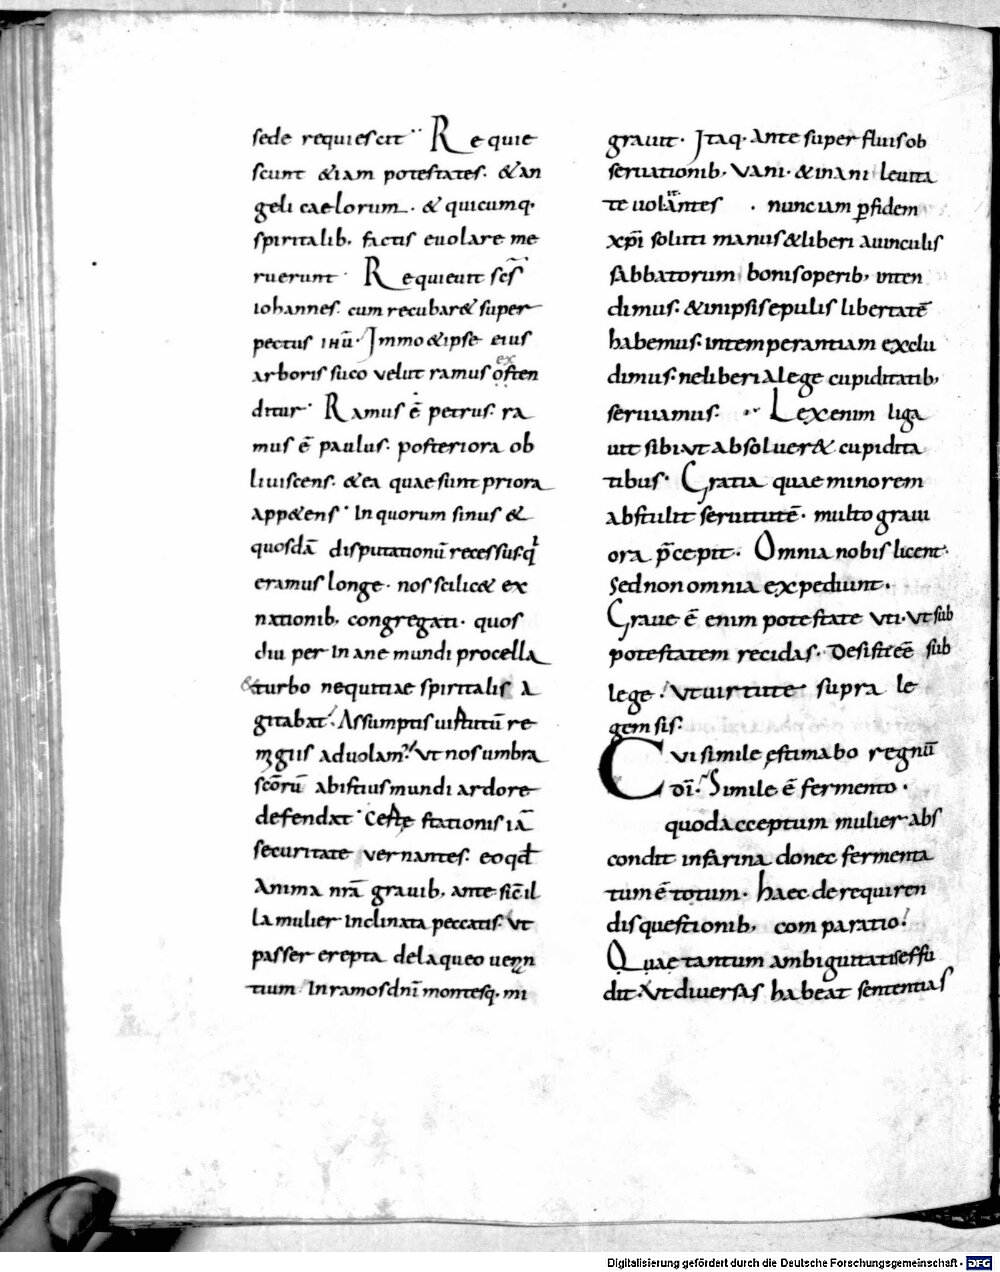 sede requiescit·· Requie
scunt &iam potestates· &an
geli caelorum· & quicumq·
spiritalib, factis euolare me
ruerunt· Requieuit scs̄
iohannes· cum recubar& super
pectus ihū· Immo &ipse eius
arboris suco velut ramus ostenditur
ditur· Ramus ē petrus· ra
mus ē paulus· posteriora ob
liuiscens· &ea quae sunt priora
app&ens· In quorum sinus &
quosdā disputationū recessus· q
eramus longe· nos scilic& ex
nationib, congregati· quos
diu per Inane mundi procella
&turbo nequitiae spiritalis a
gitabat· Assumptis uirtutū re
migiis aduolam· Vt nos umbra
scōrū ab istius mundi ardore
defendat· Certe stationis iā
securitate vernantes· eo qd
Anima nrā grauib, ante sic il
la mulier inclinata peccatis· Vt
passer erepta de laqueo uenn
tium· In ramos dnī montesq· mi
grauit· Itaq· Ante superfluis ob
seruationib, Vani· &inani leuita
te uolantes · nunc iam pfidem
xpī soliti manus &liberi a uinculis
sabbatorum bonis operib, inten
dimus· &in ipsis epulis libertatē
habemus· intemperantiam exclu
dimus· ne liberi a lege cupiditatib,
seruiamus· Lex enim liga
uit sibi vt absoluer& cupidita
tibus· Gratia quae minorem
abstulit seruitutē· multo graui
ora p̄cepit· Omnia nobis licent·
Sed non omnia expediunt·
Graue ē enim potestate vti· Vt sub
potestatem recidas· Desistē eē sub
lege· Vt uirtute supra le
gem sis·
Cui simile estimabo regnū
dī· Simile ē fermento·
quod acceptum mulier abs
condit in farina donec fermenta
tum ē totum· haec de requiren
dis questionib, comparatio·
Quae tantum ambiguitatis effu
dit· Vt diuersas habeat sententias
Digitalisierung gefördert durch die Deutsche Forschungsgemeinschaft - DFG